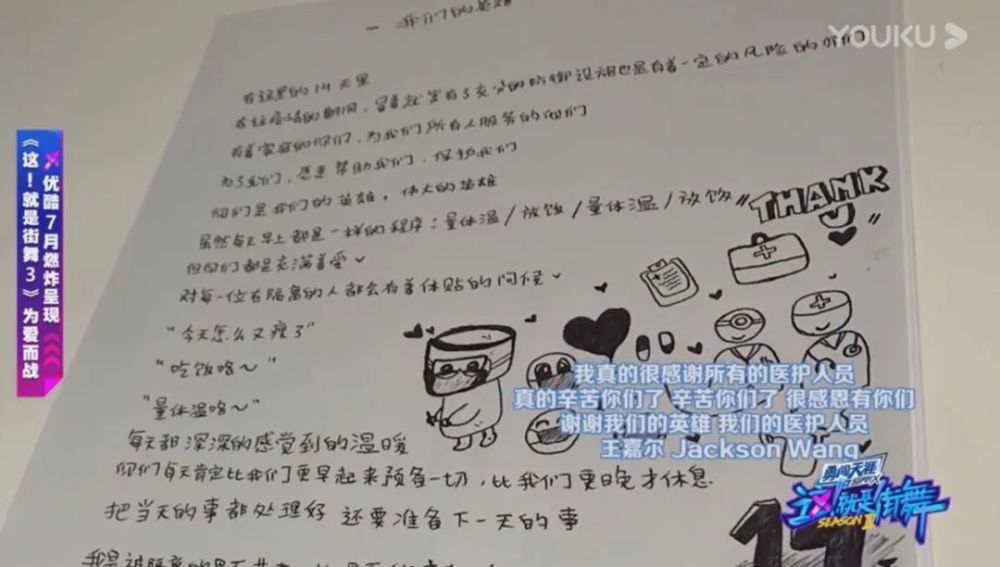 一 我们的英雄
YOUKU
在这里的14天里
在这疫情的期间，冒着就算有了充分的防御设备也是有着一定的风险的你们
有着家庭的你们，为我们所有人服务的他们
为了我们，愿意帮助我们，保护我们
你们是我们的英雄，伟大的英雄
虽然每天早上都是一样的程序：量体温/放饭/量体温/放饭
但你们都是充满着爱
对每一位在隔离的人都会有着体贴的问候
"THANK U"
"今天怎么又瘦了"
"吃饭咯~"
"量体温咯~"
每天都深深的感觉到的温暖
你们每天肯定比我们更早起来预备一切，比我们更晚才休息
把当天的事都处理好 还要准备下一天的事
14
优酷7月燃炸呈现
《这！就是街舞3》为爱而战
我真的很感谢所有的医护人员
真的辛苦你们了 辛苦你们了 很感恩有你们
谢谢我们的英雄 我们的医护人员
王嘉尔 Jackson Wang
勇闯天涯
superX
这！就是街舞
SEASON III